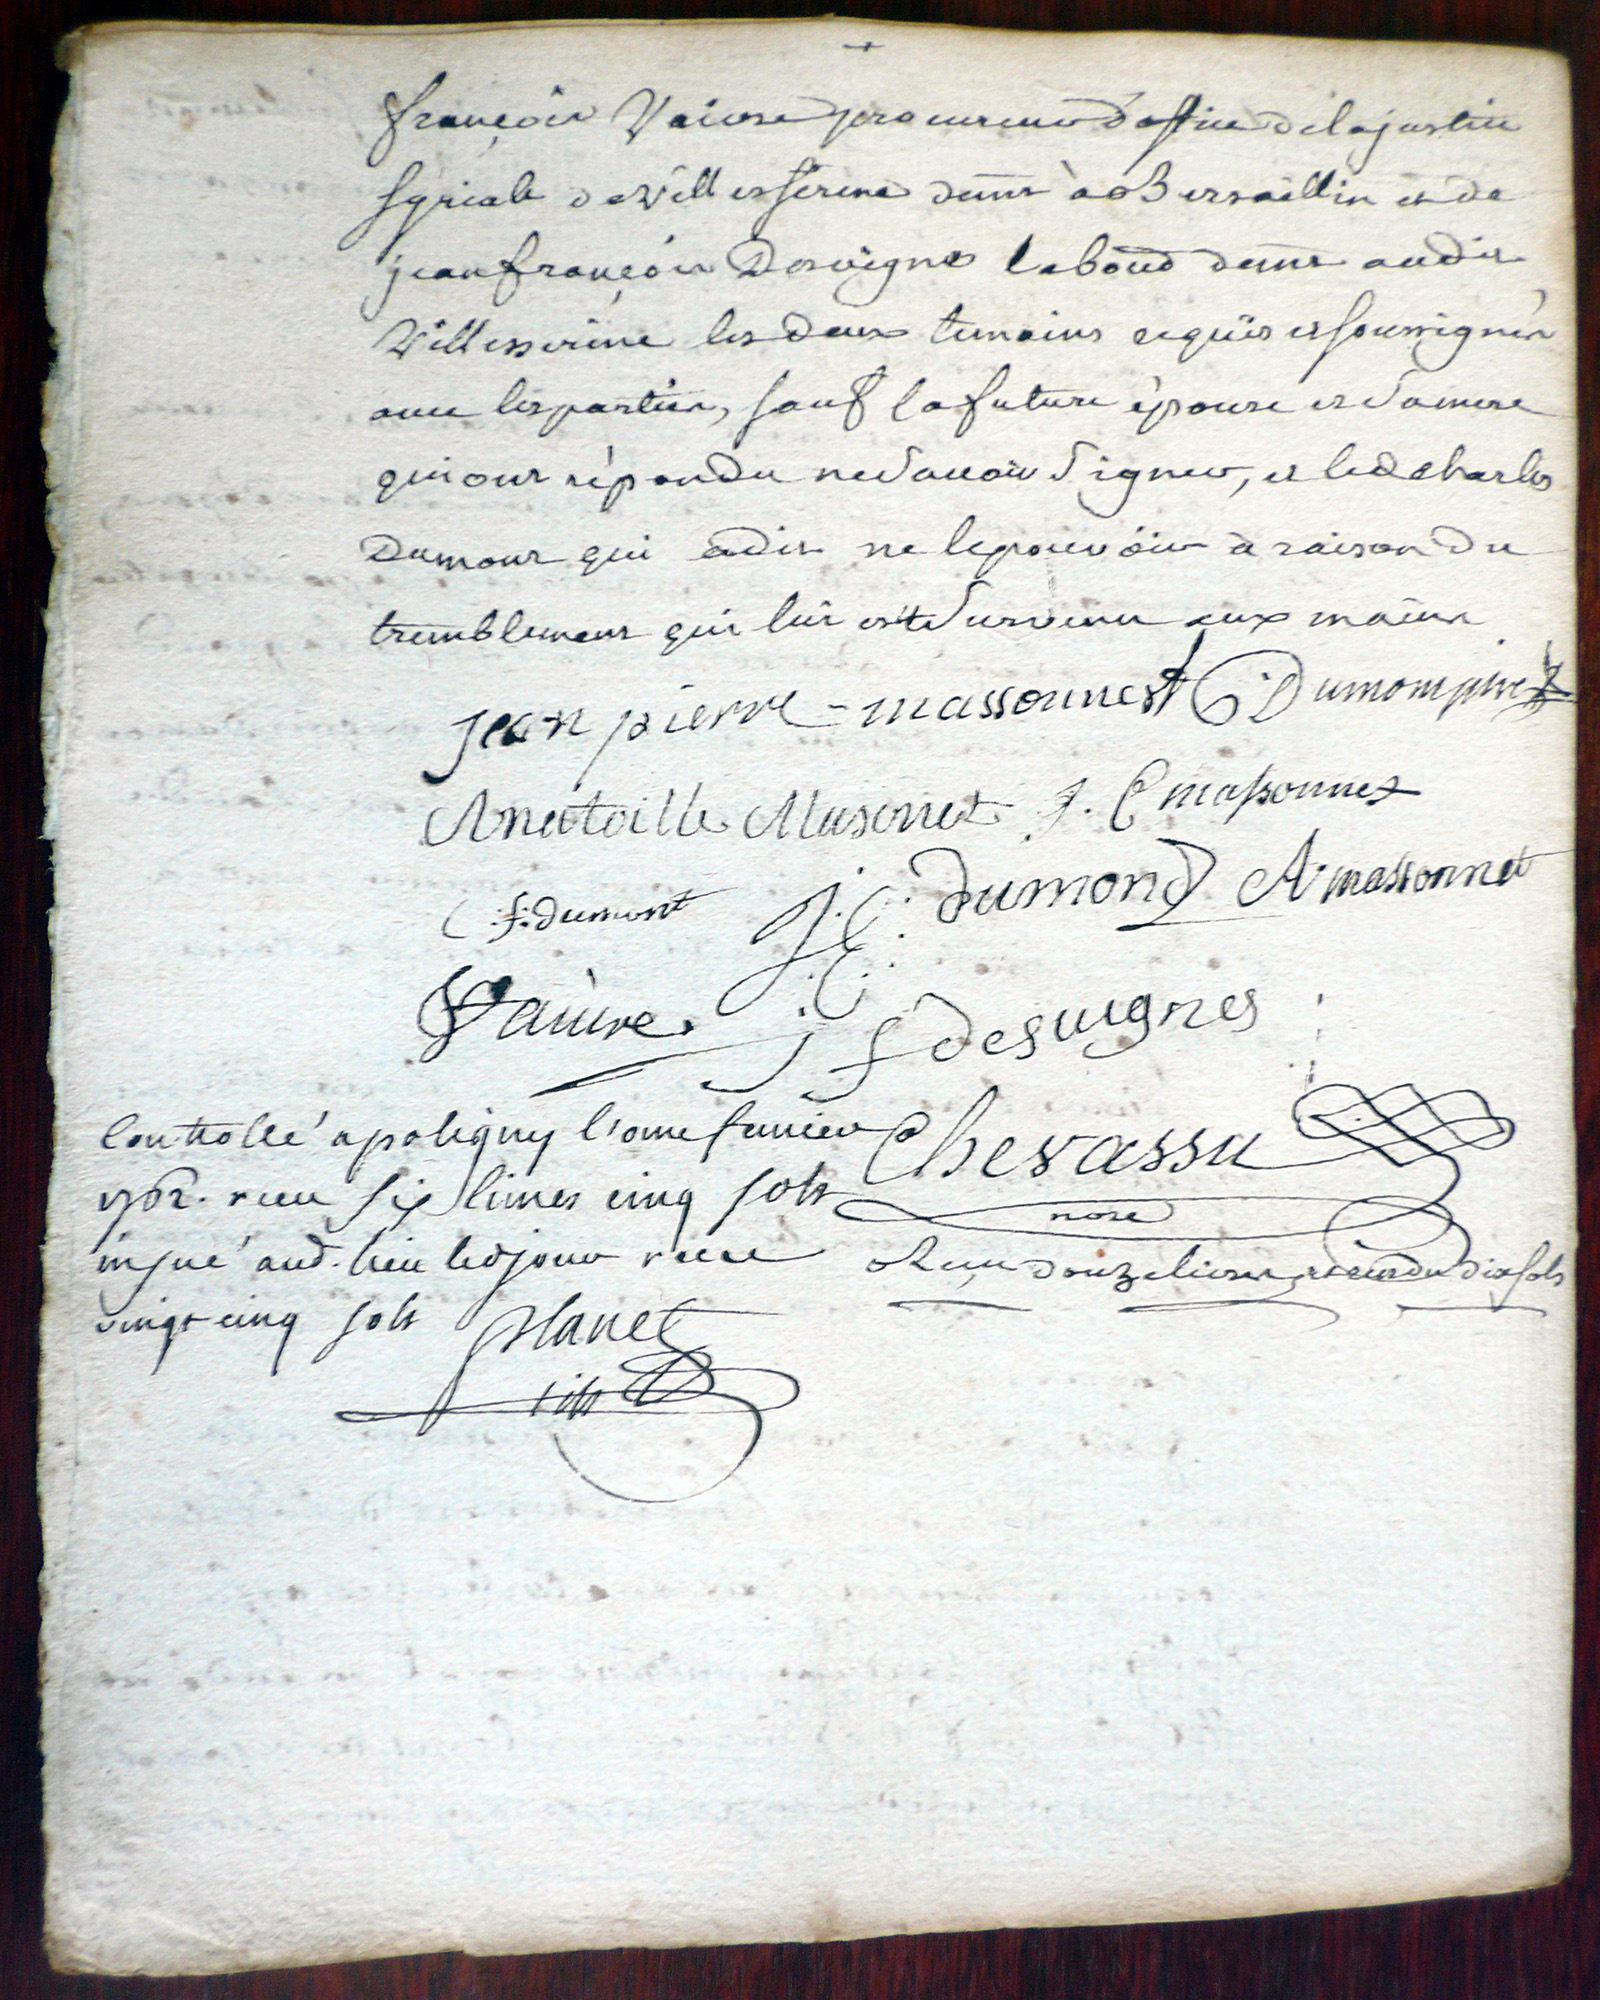 françois Vaivre procureur d'office de la justice
sgriale de Villersserine demt à oBersaillin et de
jean françois Desvignes labour demt audit
Villersserine les deux temoins requis et soussignés
avec les parties, sauf la future épouse et sa mere
qui ont répondu ne savoir signer, et led charles
Dumont qui a dit ne le pouvoir à raison du
tremblement qui lui est survenu aux mains
jean pierre - massonnest Dumont
Anatoille Masonet J. C massonnet
C f: dumont J C: dumond A massonnet
Vaivre. j f desvignes
Controllé a poligny l'onze fevrier Chevassu
1762. recu six livres cinq sols nore
insué aud. lieu led jour recu Recu douze livres et rendu dix sols
vingt cinq sols